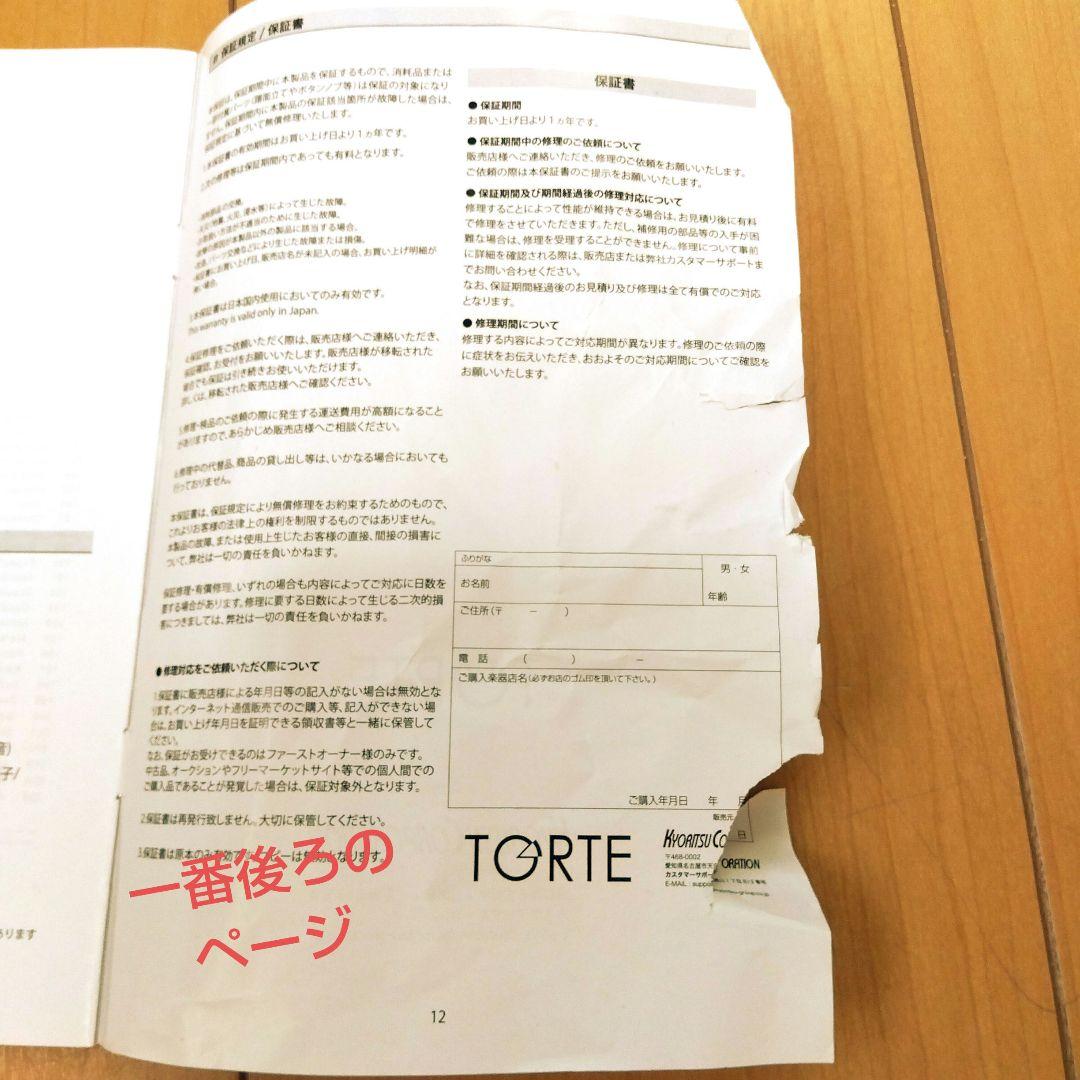 保証規定 / 保証書
本保証は、保証期間中に本製品を保証するもので、消耗品または
一部付属パーツ(譜面立てやボタンノブ等)は保証の対象になり
ません。保証期間内に本製品の保証該当箇所が故障した場合は、
保証規定に基づいて無償修理いたします。
1.本保証書の有効期間はお買い上げ日より1ヵ年です。
2.次の修理等は保証期間内であっても有料となります。
・消耗部品の交換。
火災、浸水等)によって生じた故障。
・お取扱い方法が不適当のために生じた故障。
原因が本製品以外の製品に該当する場合。
パーツ交換などにより生じた故障または損傷。
・保証書にお買い上げ日、販売店名が未記入の場合、お買い上げ明細が
無い場合。
3.本保証書は日本国内使用においてのみ有効です。
This warranty is valid only in Japan.
4.保証修理をご依頼いただく際は、販売店様へご連絡いただき、
保証確認、お受付をお願いいたします。販売店様が移転された
場合でも保証は引き続きお使いいただけます。
詳しくは、移転された販売店様へご確認ください。
5.修理・検品のご依頼の際に発生する運送費用が高額になること
がありますので、あらかじめ販売店様へご相談ください。
6.修理中の代替品、商品の貸し出し等は、いかなる場合においても
行っておりません。
本保証書は、保証規定により無償修理をお約束するためのもので、
これよりお客様の法律上の権利を制限するものではありません。
本製品の故障、または使用上生じたお客様の直接、間接の損害に
ついて、弊社は一切の責任を負いかねます。
保証修理・有償修理、いずれの場合も内容によってご対応に日数を
要する場合があります。修理に要する日数によって生じる二次的損
害につきましては、弊社は一切の責任を負いかねます。
●修理対応をご依頼いただく際について
1.保証書に販売店様による年月日等の記入がない場合は無効とな
ります。インターネット通信販売でのご購入等、記入ができない場
合は、お買い上げ年月日を証明できる領収書等と一緒に保管して
ください。
なお、保証がお受けできるのはファーストオーナー様のみです。
中古品、オークションやフリーマーケットサイト等での個人間での
ご購入品であることが発覚した場合は、保証対象外となります。
2.保証書は再発行致しません。大切に保管してください。
3.保証書は原本のみ有効です。コピーは無効となります。
一番後ろの
ページ
保証書
● 保証期間
お買い上げ日より1ヵ年です。
● 保証期間中の修理のご依頼について
販売店様へご連絡いただき、修理のご依頼をお願いいたします。
ご依頼の際は本保証書のご提示をお願いいたします。
● 保証期間及び期間経過後の修理対応について
修理することによって性能が維持できる場合は、お見積り後に有料
で修理をさせていただきます。ただし、補修用の部品等の入手が困
難な場合は、修理を受理することができません。修理について事前
に詳細を確認される際は、販売店または弊社カスタマーサポートま
でお問い合わせください。
なお、保証期間経過後のお見積り及び修理は全て有償でのご対応
となります。
● 修理期間について
修理する内容によってご対応期間が異なります。修理のご依頼の際
に症状をお伝えいただき、おおよそのご対応期間についてご確認を
お願いいたします。
ふりがな
お名前
男・女
年齢
ご住所(〒 － )
電 話 ( ) －
ご購入楽器店名(必ずお店のゴム印を頂いて下さい。)
ご購入年月日 年 月
日
TORTE
販売元
KYORITSU CO
ORATION
〒468-0002
愛知県名古屋市天
カスタマーサポー
E-MAIL : suppo
12
子/
あります